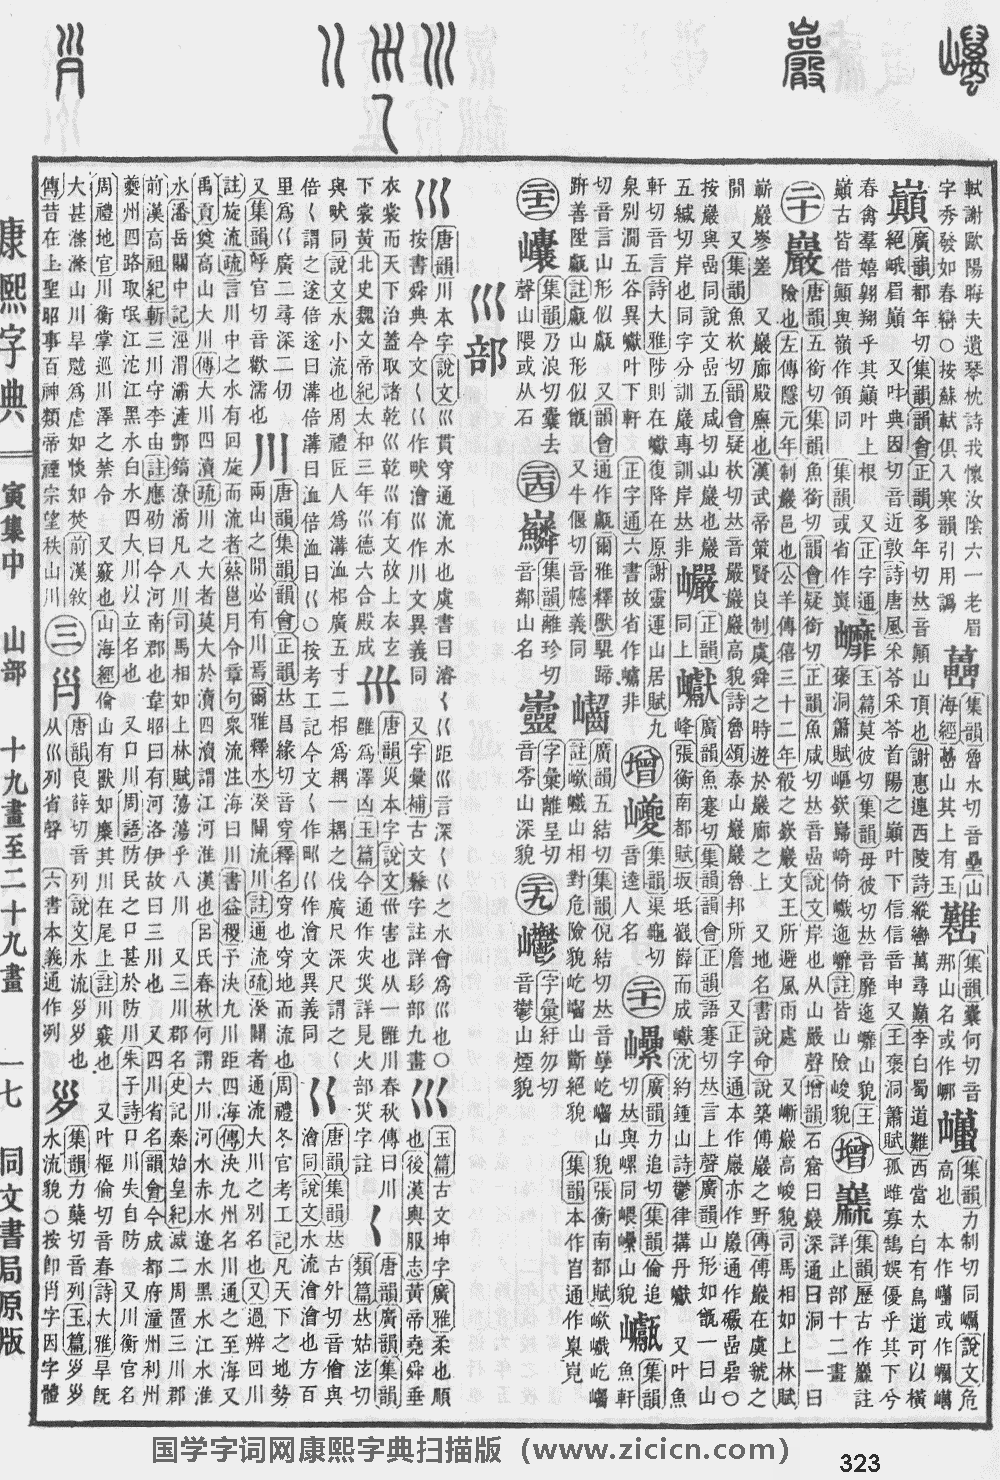 軾謝歐陽晦夫遺琴枕詩我懷汝陰六一老眉
字秀發如春巒○按蘇軾俱入寒韻引用譌
集韻魯水切音壘山
海經藟山其上有玉
集韻囊何切音
那山名或作
集韻力制切同巁說文危
高也
巔
廣韻都年切集韻韻會正韻多年切𠀤音顚山頂也謝惠連西陵詩縱轡萬尋巔李白蜀道難西當太白有鳥道可以橫
絕峨眉巔 又叶典因切音近敦詩唐風采苓采苓首陽之巔叶下信信音申又王褒洞簫賦孤雌寡鵠娛優乎其下兮
春禽羣嬉翱翔乎其巔叶上根 又正字通
巔古皆借顚與嶺作領同 集韻或省作
玉篇莫彼切集韻母彼切𠀤音靡迤㠧山貌王
褒洞簫賦嶇嶔巋崎倚巇迤㠧註皆山險峻貌
增
集韻歷古作註
詳止部十二畫
二十
巖
唐韻五銜切集韻魚銜切韻會疑銜切正韻魚咸切𠀤音嵒說文岸也从山嚴聲增韻石窟曰巖深通曰洞 一曰
險也左傳隱元年制巖邑也公羊傳僖三十二年殽之嶔巖文王所避風雨處 又嶃巖高峻貌司馬相如上林賦
嶄巖嵾嵳 又巖廊殿廡也漢武帝策賢良制虞舜之時遊於巖廊之上 又地名書說命說築傅巖之野傳傅巖在虞虢之
閒 又集韻魚杴切韻會疑杴切𠀤音嚴巖巖高貌詩魯頌泰山巖巖魯邦所詹 又正字通本作嚴亦作 巖通作礹嵒碞○
按巖與嵒同說文嵒五咸切山巖也巖
五緘切岸也同字分訓巖專訓岸𠀤非
巘
正韻
同上
巘
廣韻魚蹇切集韻韻會正韻語蹇切𠀤言上聲廣韻山形如甑一曰山
峰張衡南都賦坂坻嶻嶭而成巘沈約鍾山詩鬱律搆丹巘 又叶魚
軒切音言詩大雅陟則在巘復降在原謝靈運山居賦九
泉別澗五谷異巘叶下軒 正字通六書故省作㠣非
增
巙
集韻渠龜切
音逵人名
二十一
廣韻力追切集韻倫追
切𠀤與㠥同嵔㠥山貌
集韻
魚軒
切音言山形似甗 又韻會通作甗爾雅釋獸騉蹄
趼善陞甗註甗山形似甑 又牛偃切音㡥義同
廣韻五結切集韻倪結切𠀤音孼屹㠜山貌張衡南都賦岤巇屹㠜
註嶔巇山相對危險貌屹㠜山斷絕貌 集韻本作㟧通作臬臲
二十二
集韻乃浪切囊去
聲山隈或从石
二十四
集韻離珍切
音鄰山名
字彙離呈切
音零山深貌
二十九
字彙紆勿切
音鬱山煙貌
巛部
巛
唐韻川本字說文巛貫穿通流水也虞書曰濬𡿨巜距巛言深𡿨巜之水會爲巛也○
按書舜典今文𡿨巜作畎澮巛作川文異義同 又字彙補古文鬊字註詳髟部九畫
巛
玉篇古文坤字廣雅柔也順
也後漢輿服志黃帝堯舜垂
衣裳而天下治蓋取諸乾巛乾巛有文故上衣玄
下裳黃北史魏文帝紀太和三年巛德六合殿成
唐韻灾本字說文𡿧害也从一雝川春秋傳曰川
雝爲澤凶玉篇今通作灾災詳見火部災字註
𡿨
唐韻廣韻集韻
類篇𠀤姑泫切
與畎同說文水小流也周禮匠人爲溝洫枱廣五寸二枱爲耦一耦之伐廣尺深尺謂之𡿨
倍𡿨謂之遂倍遂曰溝倍溝曰洫倍洫曰巜○按考工記今文𡿨作𤰕巜作澮文異義同
巜
唐韻集韻𠀤古外切音儈與
澮同說文水流澮澮也方百
里爲巜廣二尋深二仞
又集韻呼官切音歡濡也
川
唐韻集韻韻會正韻𠀤昌緣切音穿釋名穿也穿地而流也周禮冬官考工記凡天下之地勢
兩山之閒必有川焉爾雅釋水湀闢流川註通流疏湀闢者通流大川之別名也又過辨回川
註旋流疏言川中之水有回旋而流者蔡邕月令章句衆流注海曰川書益稷予決九川距四海傳決九州名川通之至海又
禹貢奠高山大川傳大川四瀆疏川之大者莫大於瀆四瀆謂江河淮漢也呂氏春秋何謂六川河水赤水遼水黑水江水淮
水潘岳關中記涇渭灞滻酆鎬潦潏凡八川司馬相如上林賦蕩蕩乎八川 又三川郡名史記秦始皇紀滅二周置三川郡
前漢高祖紀斬三川守李由註應劭曰今河南郡也韋昭曰有河洛伊故曰三川也 又四川省名韻會今成都府潼州利州
夔州四路取岷江沱江黑水白水四大川以立名也 又口川周語防民之口甚於防川朱子詩口川失自防 又川衡官名
周禮地官川衡掌巡川澤之禁令 又竅也山海經倫山有獸如麋其川在尾上註川竅也 又叶樞倫切音春詩大雅旱旣
大甚滌滌山川旱魃爲虐如惔如焚前漢敘
傳昔在上聖昭事百神類帝禋宗望秩山川
三
唐韻良辥切音列說文水流𡿪𡿪也
从巛列省聲 六書本義通作列
集韻力蘗切音列玉篇
水流貌○按卽𡿪字因字體
康熙字典
寅集中 山部 十九畫至二十九畫
一七
同文書局原版
国学字词网康熙字典扫描版（www.zicicn.com）
323